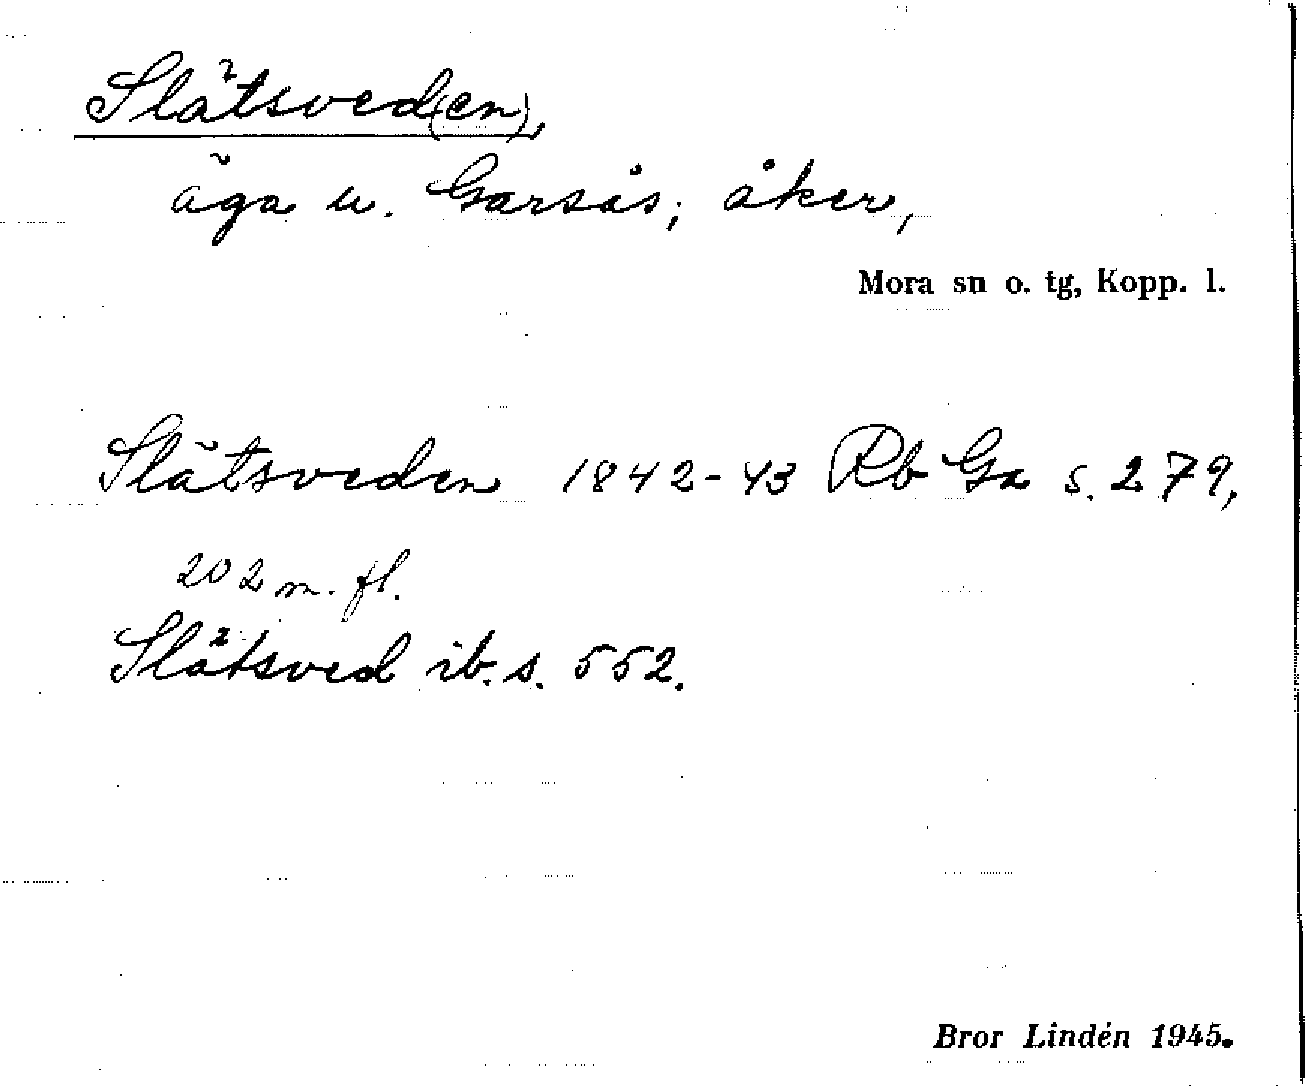 Slätsved(en),
äga u. Garsås; åker,
Mora sn o. tg, Kopp. l.
Slätsveden 1842-43 Rb Ga s. 279,
202 m. fl.
Slätsved ib. s. 552.
Bror Lindén 1945.